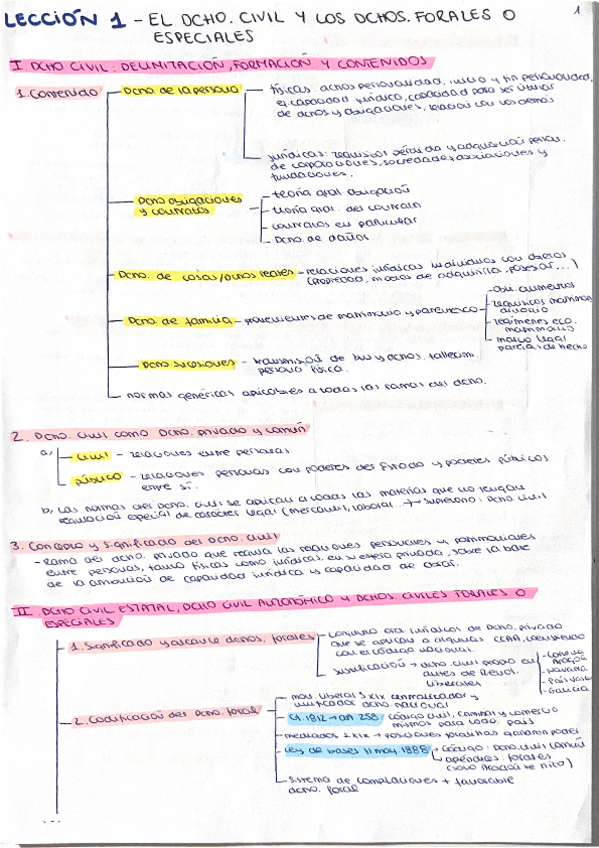 LECCIÓN 1 - EL DCHO. CIVIL Y LOS DCHOS. FORALES O
ESPECIALES
1
I DCHO CIVIL: DELIMITACIÓN, FORMACIÓN Y CONTENIDOS
1. Contenido
Dcho de la persona
físicas: dchos personalidad, inicio y fin personalidad,
el capacidad jurídica, capacidad para ser titular
de dchos y obligaciones, relación con los demás
jurídicas: requisitos pérdida y adquisición person.
de corporaciones, sociedades, asociaciones y
fundaciones.
Dcho obligaciones
y contratos
- teoría gral obligación
- teoría gral. del contrato
- contratos en particular
- Dcho. de daños
Dcho. de cosas/dchos reales - relaciones jurídicas individuos con objetos
(propiedad, modos de adquirirla, poseer...)
Dcho. de familia - provenientes de matrimonio y parentesco
- Obli. alimentos
- requisitos matrimonio
divorcio
- regímenes eco.
matrimoniales
- marco legal
parejas de hecho
Dcho sucesiones - transmisión de bns y dchos. fallecim.
persona física.
normas genéricas aplicables a todas las ramas del dcho.
2. Dcho. civil como Dcho. privado y común
a,
civil - relaciones entre personas
público - relaciones personas con poderes del Estado y poderes públicos
entre sí.
b, Las normas del Dcho. civil se aplican a todas las materias que no tengan
regulación especial de carácter legal (mercantil, laboral... → supletorio: Dcho. civil
3. Concepto y significado del dcho. civil
- Rama del dcho. privado que regula las relaciones personales y patrimoniales
entre personas, tanto físicas como jurídicas, en su esfera privada, sobre la base
de la atribución de capacidad jurídica y capacidad de obrar.
II. DCHO CIVIL ESTATAL, DCHO CIVIL AUTONÓMICO Y DCHOS. CIVILES FORALES O
ESPECIALES
1. Significado y alcance dchos. forales
- conjunto jurídicos de Dcho. privado
que se aplican a algunas CCAA, coexistiendo
con el código nacional.
Justificación → dcho. civil propio en
antes de Revol.
liberales
- Aragón
- Navarra
- País Vasco
- Galicia
2. Codificación del Dcho. foral
mov. liberal s XIX centralizador y
unificador dcho nacional
Ct. 1812 → art 258: código civil, criminal y comercio
mismos para todo país
mediados s XIX → posiciones foralistas ganaron poder
Ley de bases 11 may 1888
código: Dcho. civil común
apéndices: forales
(solo Aragón se hizo)
- Sistema de compilaciones + favorable
dcho. foral
...